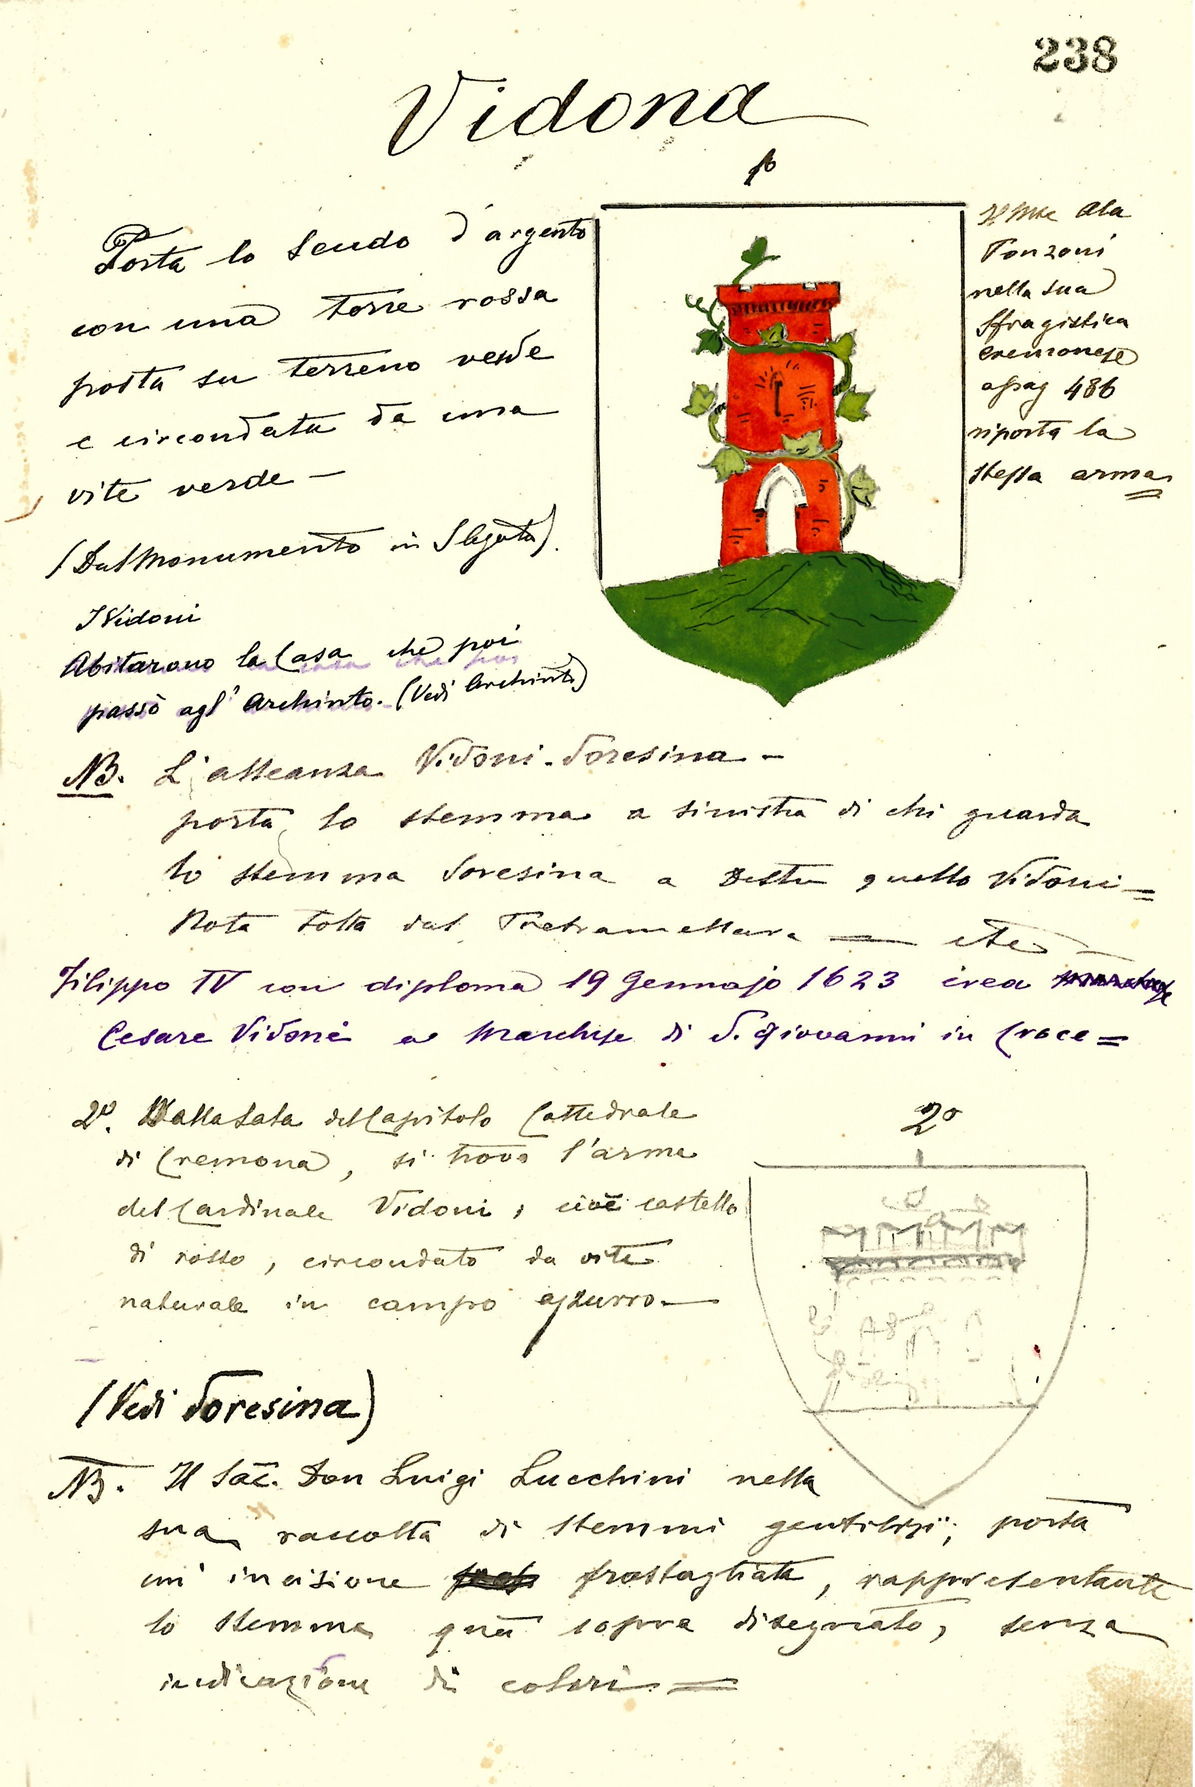 238
Vidona
1º
Porta lo Scudo d'argento
con una torre rossa
posta su terreno verde
e circondata da una
vite verde —
(Dal Monumento in S. Agata).
Il Mse Ala
Ponzoni
nella sua
Sfragistica
cremonese
a pag 486
riporta la
stessa arma
I Vidoni
Abitarono la Casa che poi
passò agl' Archinto. (Vedi Archinto)
NB. L'alleanza Vidoni-Soresina —
porta lo stemma a sinistra di chi guarda
lo stemma Soresina a destra quello Vidoni =
Nota tolta dal
Filippo IV con diploma 19 Gennajo 1623 crea
Cesare Vidoni a Marchese di S. Giovanni in Croce =
2º. Dalla Sala del Capitolo Cattedrale
di Cremona, si trova l'arma
del Cardinale Vidoni, cioè castello
di rosso, circondato da vite
naturale in campo azzurro. —
2º
(Vedi Soresina)
NB. Il Sac. Don Luigi Lucchini nella
sua raccolta di stemmi gentilizi; porta
un' incisione frastagliata, rappresentante
lo stemma quì sopra disegnato, senza
indicazione di colori =